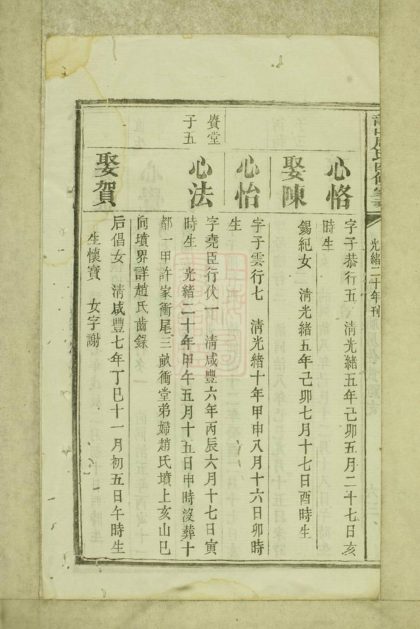 光緒二十年刊
心恪 字子恭行五 清光緒五年己卯五月二十七日亥
時生
娶陳 錫紀女 清光緒五年己卯七月十七日酉時生
心怡 字子雲行七 清光緒十年甲申八月十六日卯時
生
資堂
子五
心法 字堯臣行伏一 清咸豐六年丙辰六月十七日寅
時生 光緒二十年甲午五月十五日申時沒葬十
都一甲許家衝尾三畝衝堂弟婦趙氏墳上亥山巳
向墳界詳趙氏齒錄
娶賀 后倡女 清咸豐七年丁巳十一月初五日午時生
生懷寶 女字謝